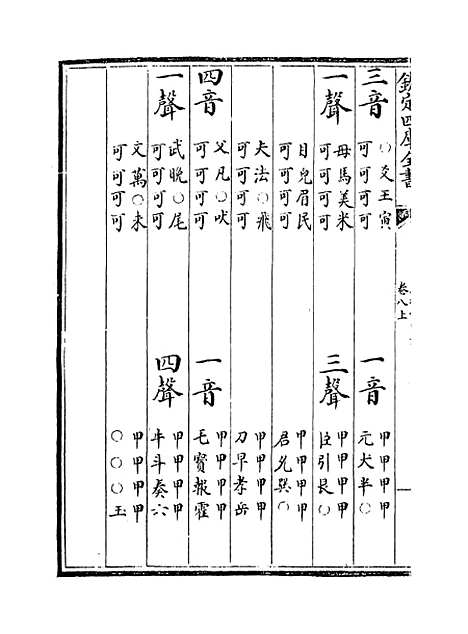 欽定四庫全書
卷八上
三音
○爻王寅
可可可可
一聲
母馬美米
可可可可
目皃眉民
可可可可
夫法○飛
可可可可
四音
父凡○吠
可可可可
一聲
武晚○尾
可可可可
文萬○未
可可可可
一音
甲甲甲甲
元犬半○
三聲
甲甲甲甲
臣引艮○
甲甲甲甲
君允巽○
甲甲甲甲
刀早孝岳
一音
甲甲甲甲
毛寶報霍
四聲
甲甲甲甲
牛斗奏六
甲甲甲甲
○○○玉